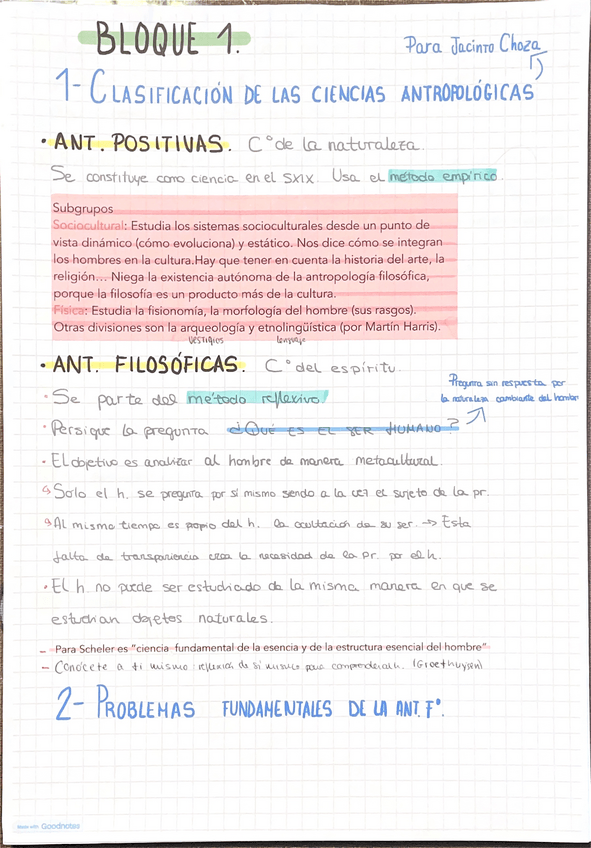 BLOQUE 1.
Para Jacinto Choza
1- CLASIFICACIÓN DE LAS CIENCIAS ANTROPOLÓGICAS
· ANT. POSITIVAS. Cº de la naturaleza.
Se constituye como ciencia en el SXIX. Usa el método empírico.
Subgrupos
Sociocultural: Estudia los sistemas socioculturales desde un punto de
vista dinámico (cómo evoluciona) y estático. Nos dice cómo se integran
los hombres en la cultura.Hay que tener en cuenta la historia del arte, la
religión... Niega la existencia autónoma de la antropología filosófica,
porque la filosofía es un producto más de la cultura.
Física: Estudia la fisionomía, la morfología del hombre (sus rasgos).
Otras divisiones son la arqueología y etnolingüística (por Martín Harris).
vestigios lenguaje
· ANT. FILOSÓFICAS. Cº del espíritu.
· Se parte del método reflexivo
Pregunta sin respuesta por
la naturaleza cambiante del hombre
· Persigue la pregunta ¿QUÉ ES EL SER HUMANO?
· El objetivo es analizar al hombre de manera metacultural.
Solo el h. se pregunta por sí mismo siendo a la vez el sujeto de la pr.
Al mismo tiempo es propio del h. la ocultación de su ser. → Esta
falta de transparencia crea la necesidad de la pr. por el h.
· El h no puede ser estudiado de la misma manera en que se
estudian objetos naturales.
– Para Scheler es "ciencia fundamental de la esencia y de la estructura esencial del hombre"
– Conócete a ti mismo: reflexión de sí mismo para comprender al h. (Groethuysen)
2- PROBLEMAS FUNDAMENTALES DE LA ANT. Fª.
Made with Goodnotes